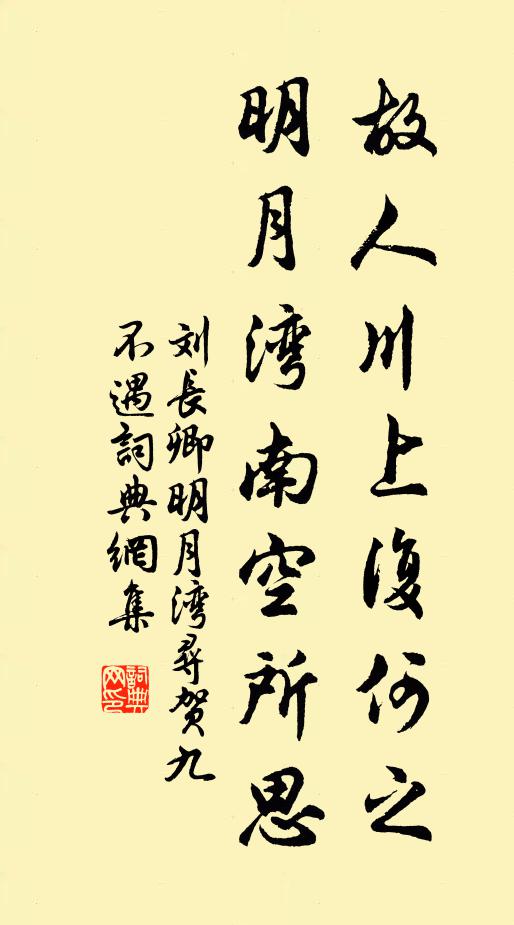 故人川上復何之
明月湾南空所思
刘長卿明月湾尋賀九
不遇詞典網集
詞典
网印